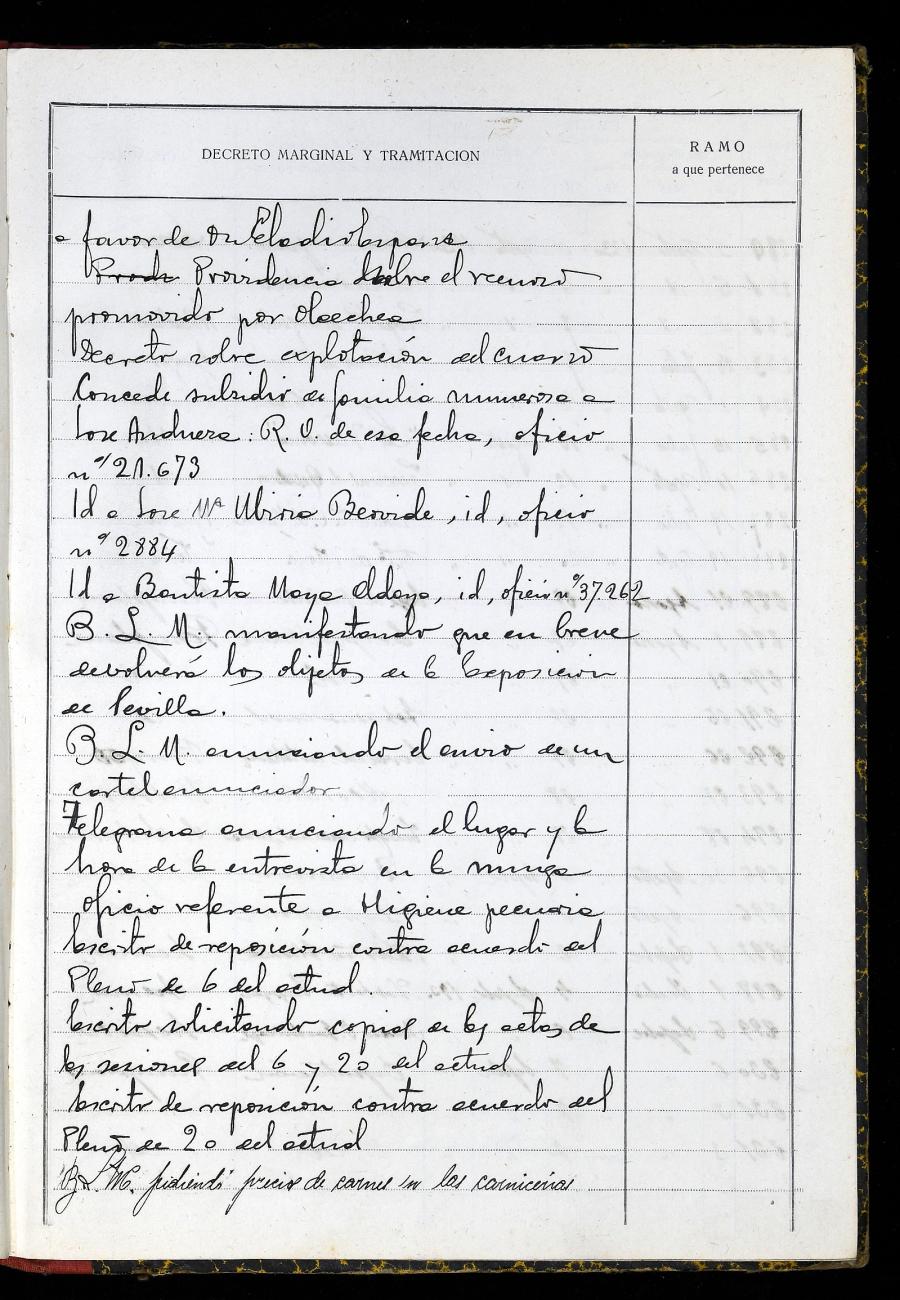 DECRETO MARGINAL Y TRAMITACION
RAMO
a que pertenece
a favor de Dn Eladio Esparza
Providencia sobre el recurso
promovido por Olaechea
Decreto sobre explotación del cuarzo
Concede subsidio de familia numerosa a
Jose Andueza: R. O. de esa fecha, oficio
nº 21.673
Id a Jose Mª Ubiria Beovide, id, oficio
nº 2884
Id a Bautista Maya Eldayo, id, oficio nº 37262
B. L. M. manifestando que en breve
devolverá los objetos de la Exposicion
de Sevilla.
B. L. M. anunciando el envio de un
cartel anunciador
Telegrama anunciando el lugar y la
hora de la entrevista en la muga
Oficio referente a Higiene pecuaria
Escrito de reposición contra acuerdo del
Pleno de 6 del actual.
Escrito solicitando copias de las actas de
las sesiones del 6 y 20 del actual
Escrito de reposición contra acuerdo del
Pleno de 20 del actual
B. L. M. pidiendo precios de carnes en las carnicerias